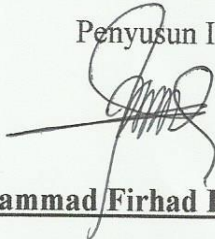 Penyusun I
ammad Firhad